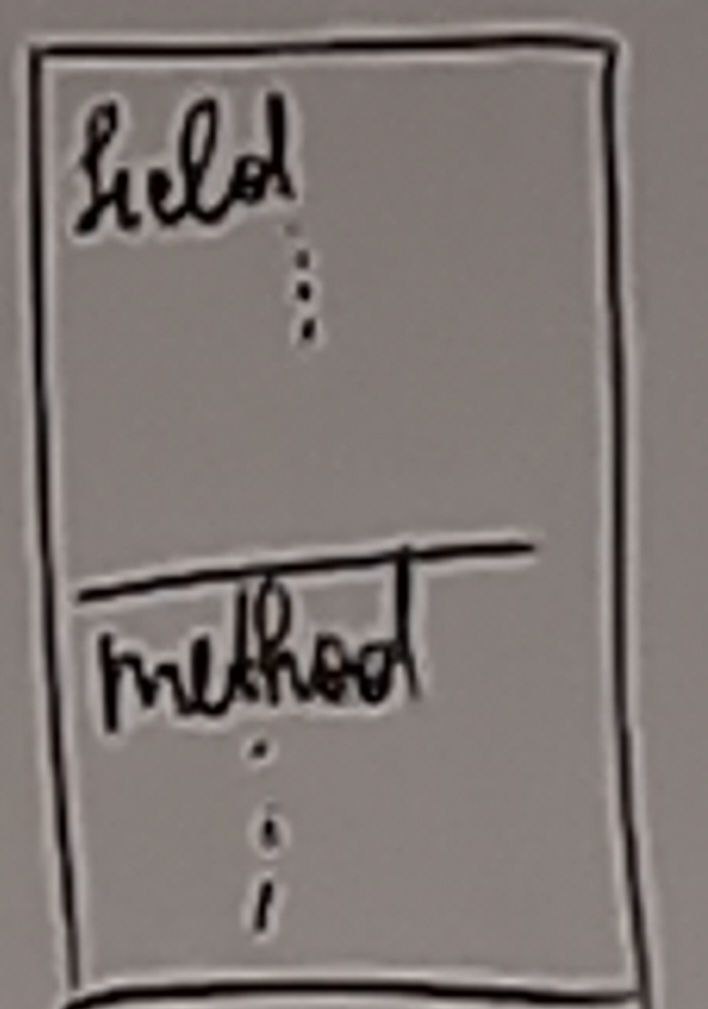 field
method